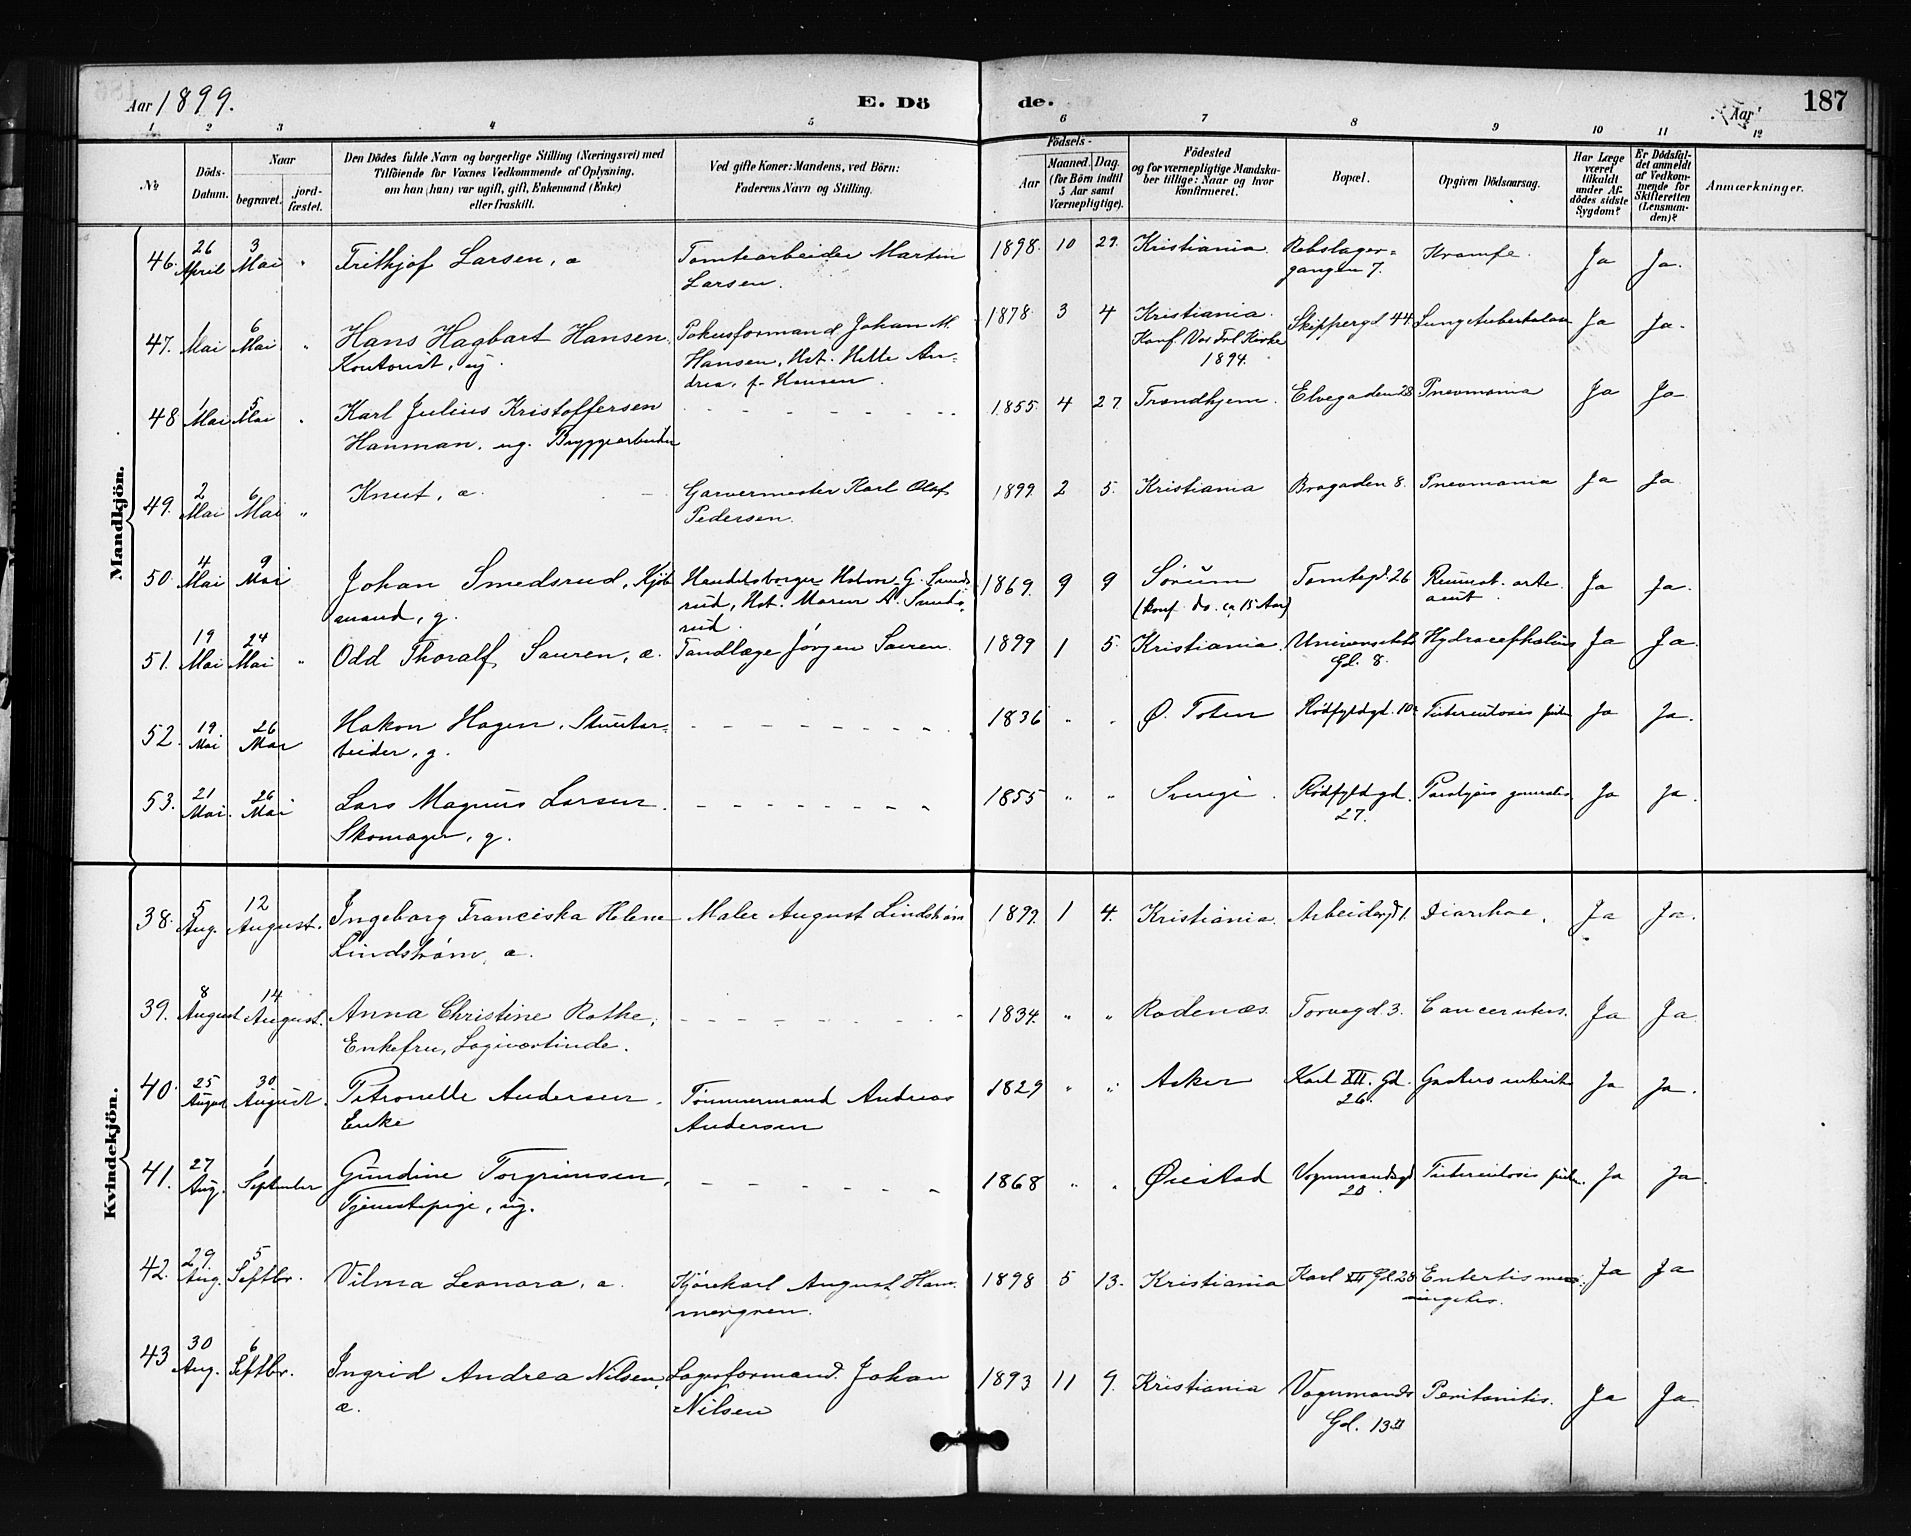 Aar 1899.
E. Dö
de.
Aar
187
1 2 3 4 5 6 7 8 9 10 11 12
No
Döds-Datum.
Naar
begravet.
jord-fæstet.
Den Dödes fulde Navn og borgerlige Stilling (Næringsvei) med
Tilföiende for Voxnes Vedkommende af Oplysning,
om han (hun) var ugift, gift, Enkemand (Enke)
eller fraskilt.
Ved gifte Koner: Mandens, ved Börn:
Faderens Navn og Stilling.
Födsels-
Aar
Maaned. Dag.
(for Börn indtil
5 Aar samt
Værnepligtige).
Födested
og for værnepligtige Mandska-
ber tillige: Naar og hvor
konfirmeret.
Bopæl.
Opgiven Dödsaarsag.
Har Læge
været
tilkaldt
under Af-
dödes sidste
Sygdom?
Er Dödsfal-
det anmeldt
af Vedkom-
mende for
Skifteretten
(Lensman-
den)?
Anmærkninger.
Mandkjön.
46. 26 April 3 Mai " Frithjof Larsen, a Tomtearbeider Martin Larsen. 1898. 10 29. Kristiania. Rebslager-gangen 7. Krampe. Ja Ja.
47. 1 Mai 6 Mai " Hans Hagbart Hansen, Kontorist, ug. Johan M. Hansen, Hst. Andrea, f. Hansen. 1878. 3 4 Kristiania. Konf. Vor Frl Kirke 1894. Skippergd 44. Ja Ja.
48 1 Mai 5 Mai " Karl Julius Kristoffersen Hanman, ug. Bryggearbeider - - - - 1855. 4 27. Trondhjem. Elvegaden 28 Pneumonia Ja Ja
49. 2 Mai 6 Mai " Knut, a. Garvermester Karl Olaf Pedersen. 1899. 2 5. Kristiania Brogaden 8. Pneumonia Ja Ja
50. 4 Mai 9 Mai Johan Smedsrud, Kjöbmand, g. Handelsborger G. Smedsrud, Hst. Maren A. Smedsrud. 1869. 9 9 Sörum (konf. do. ca 15 Aar) Tomtegd. 26 Ja Ja.
51. 19 Mai 24 Mai " Odd Thoralf Sauren, a. Tandlæge Jörgen Sauren. 1899 1 5. Kristiania. Universitets Gd. 8. Hydrocefhalus Ja Ja.
52. 19 Mai 26 Mai Hakon Hagen, Stuearbeider, g. - - - - 1836 " " Ø. Toten Rödfyldgd. 10 Tuberculosis pulm Ja Ja.
53. 21 Mai. 26 Mai Lars Magnus Larsen. Skomager, g. - - - - 1855 " " Sverige. Rödfyldgd. 27. Paralysis generalis Ja Ja.
Kvindekjön.
38. 5 Aug. 12 August. Ingeborg Franciska Helene Lindström, a. Maler August Lindström 1899. 1 4. Kristiania. Arbeidergd 1. Diarrhoe. Ja Ja.
39. 8 August 14 August. Anna Christine Rothe, Enkefru, Logiværtinde. - - - - 1834. " " Rodenæs. Torvegd. 3. Cancer uteri. Ja Ja
40. 25 August 30 August. Petronelle Andersen. Enke Tömmermand Andreas Andersen 1829 " " Asker Karl XII. Gd. 26. Ja Ja.
41. 27 Aug. 1 September Gundine Torgrimsen, Tjenestepige, ug. - - - - 1868 " " Øiestad Vognmandsgd 28. Tuberculosis pulm. Ja Ja.
42. 29 Aug. 5 Septbr. Vilma Leonora, a. Kjörekarl August Hammergren. 1898 5 13. Kristiania Karl XII Gd. 28 Ja Ja
43 30 Aug. 6 Septbr. Ingrid Andrea Nilsen, a. Lagerformand. Johan Nilsen 1893 11 9. Kristiania Vognmands Gd. 13 II Peritonitis. Ja Ja.